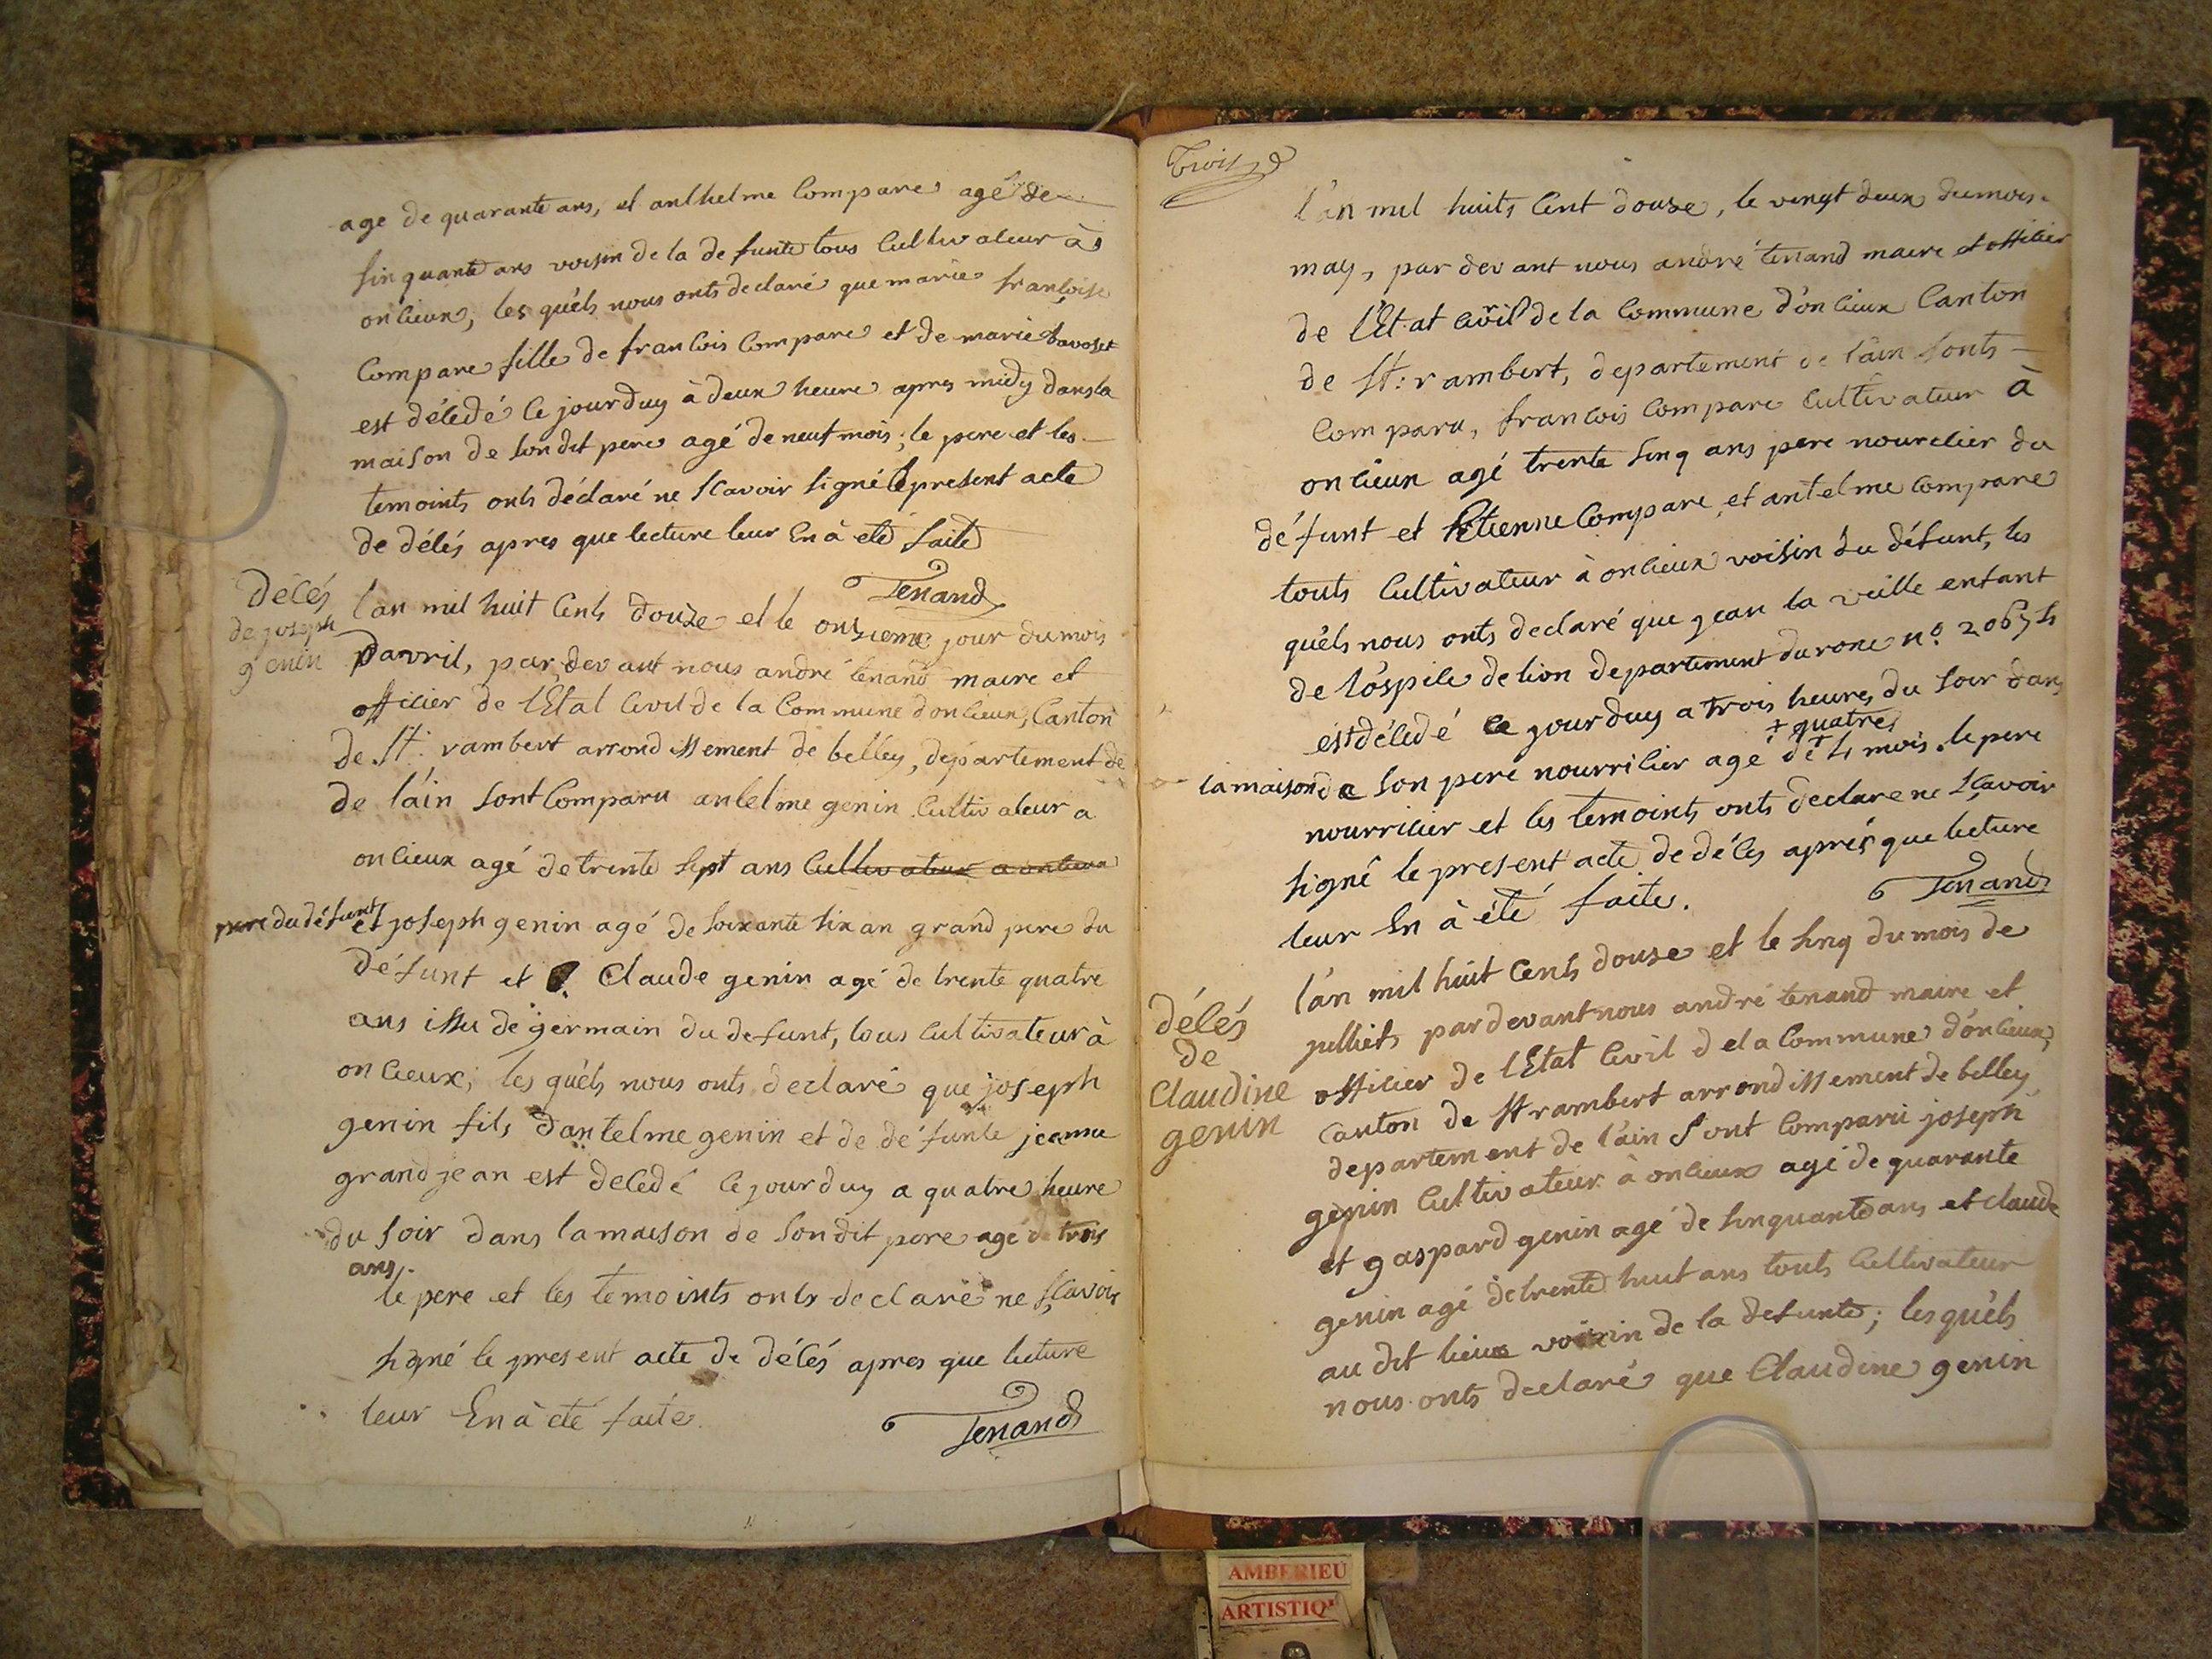 age de quarante ans, et anthelme Compare agé de
sinquante ans voisin de la defunte tous Cultivateur à
onlieux, les quéls nous onts declaré que marie françoise
Compare fille de francois Compare et de marie
est décedé ce jourduy à deux heure apres midy dans la
maison de son dit pere agé de neuf mois; le pere et les
temoints onts déclaré ne scavoir signé le present acte
de décés apres que lecture leur En à eté faite
Tenand
décés
de joseph
genin
l'an mil huit Cents douze et le onzieme jour du mois
d'avril, par devant nous andré tenand maire et
officier de l'Etat Civil de la Commune d'onlieux, Canton
de St. rambert arrondissement de belley, département de
de l'ain sont Comparu antelme genin Cultivateur a
onlieux agé de trente sept ans Cultivateur a onlieux
pere du défunt et joseph genin agé de soixante six an grand pere du
défunt et Claude genin agé de trente quatre
ans issu de germain du defunt, tous Cultivateur à
onlieux; les quéls nous onts declaré que joseph
genin fils d'antelme genin et de défunte jeanne
grandjean est decedé ce jourduy a quatre heure
du soir dans la maison de son dit pere agé de trois
ans.
le pere et les temoints onts declaré ne scavoir
signé le present acte de décés apres que lecture
leur En à eté faite.
Tenand
Trois
l'an mil huits Cent douze, le vingt deux du mois
may, par devant nous andré tenand maire et officier
de l'Etat Civil de la Commune d'onlieux Canton
de St: rambert, departement de l'ain sonts
Comparu, francois Compare Cultivateur à
onlieux agé trente sinq ans pere nourricier du
défunt et Etienne Compare, et antelme Compare
touts Cultivateur à onlieux voisin du défunt, les
quéls nous onts declaré que jean la veille enfant
de l'ospice de lion departement du rone n°. 20654
est décedé ce jourduy a trois heures du soir dans
+ quatre
la maison de son pere nourricier agé de + 4 mois. le pere
nourricier et les temoints onts declare ne scavoir
signé le present acte de décés aprés que lecture
leur En à été faite.
Tenand
décés
de
Claudine
genin
l'an mil huit Cents douze et le sinq du mois de
julliets par devant nous andré tenand maire et
officier de l'Etat Civil de la Commune d'onlieux,
Canton de St rambert arrondissement de belley
departement de l'ain sont Comparu joseph
genin Cultivateur à onlieux agé de quarante
et gaspard genin agé de sinquante ans et claude
genin agé de trente huit ans touts Cultivateur
au dit lieux voisin de la defunte; les quéls
nous onts declaré que Claudine genin
AMBERIEU
ARTISTIQ